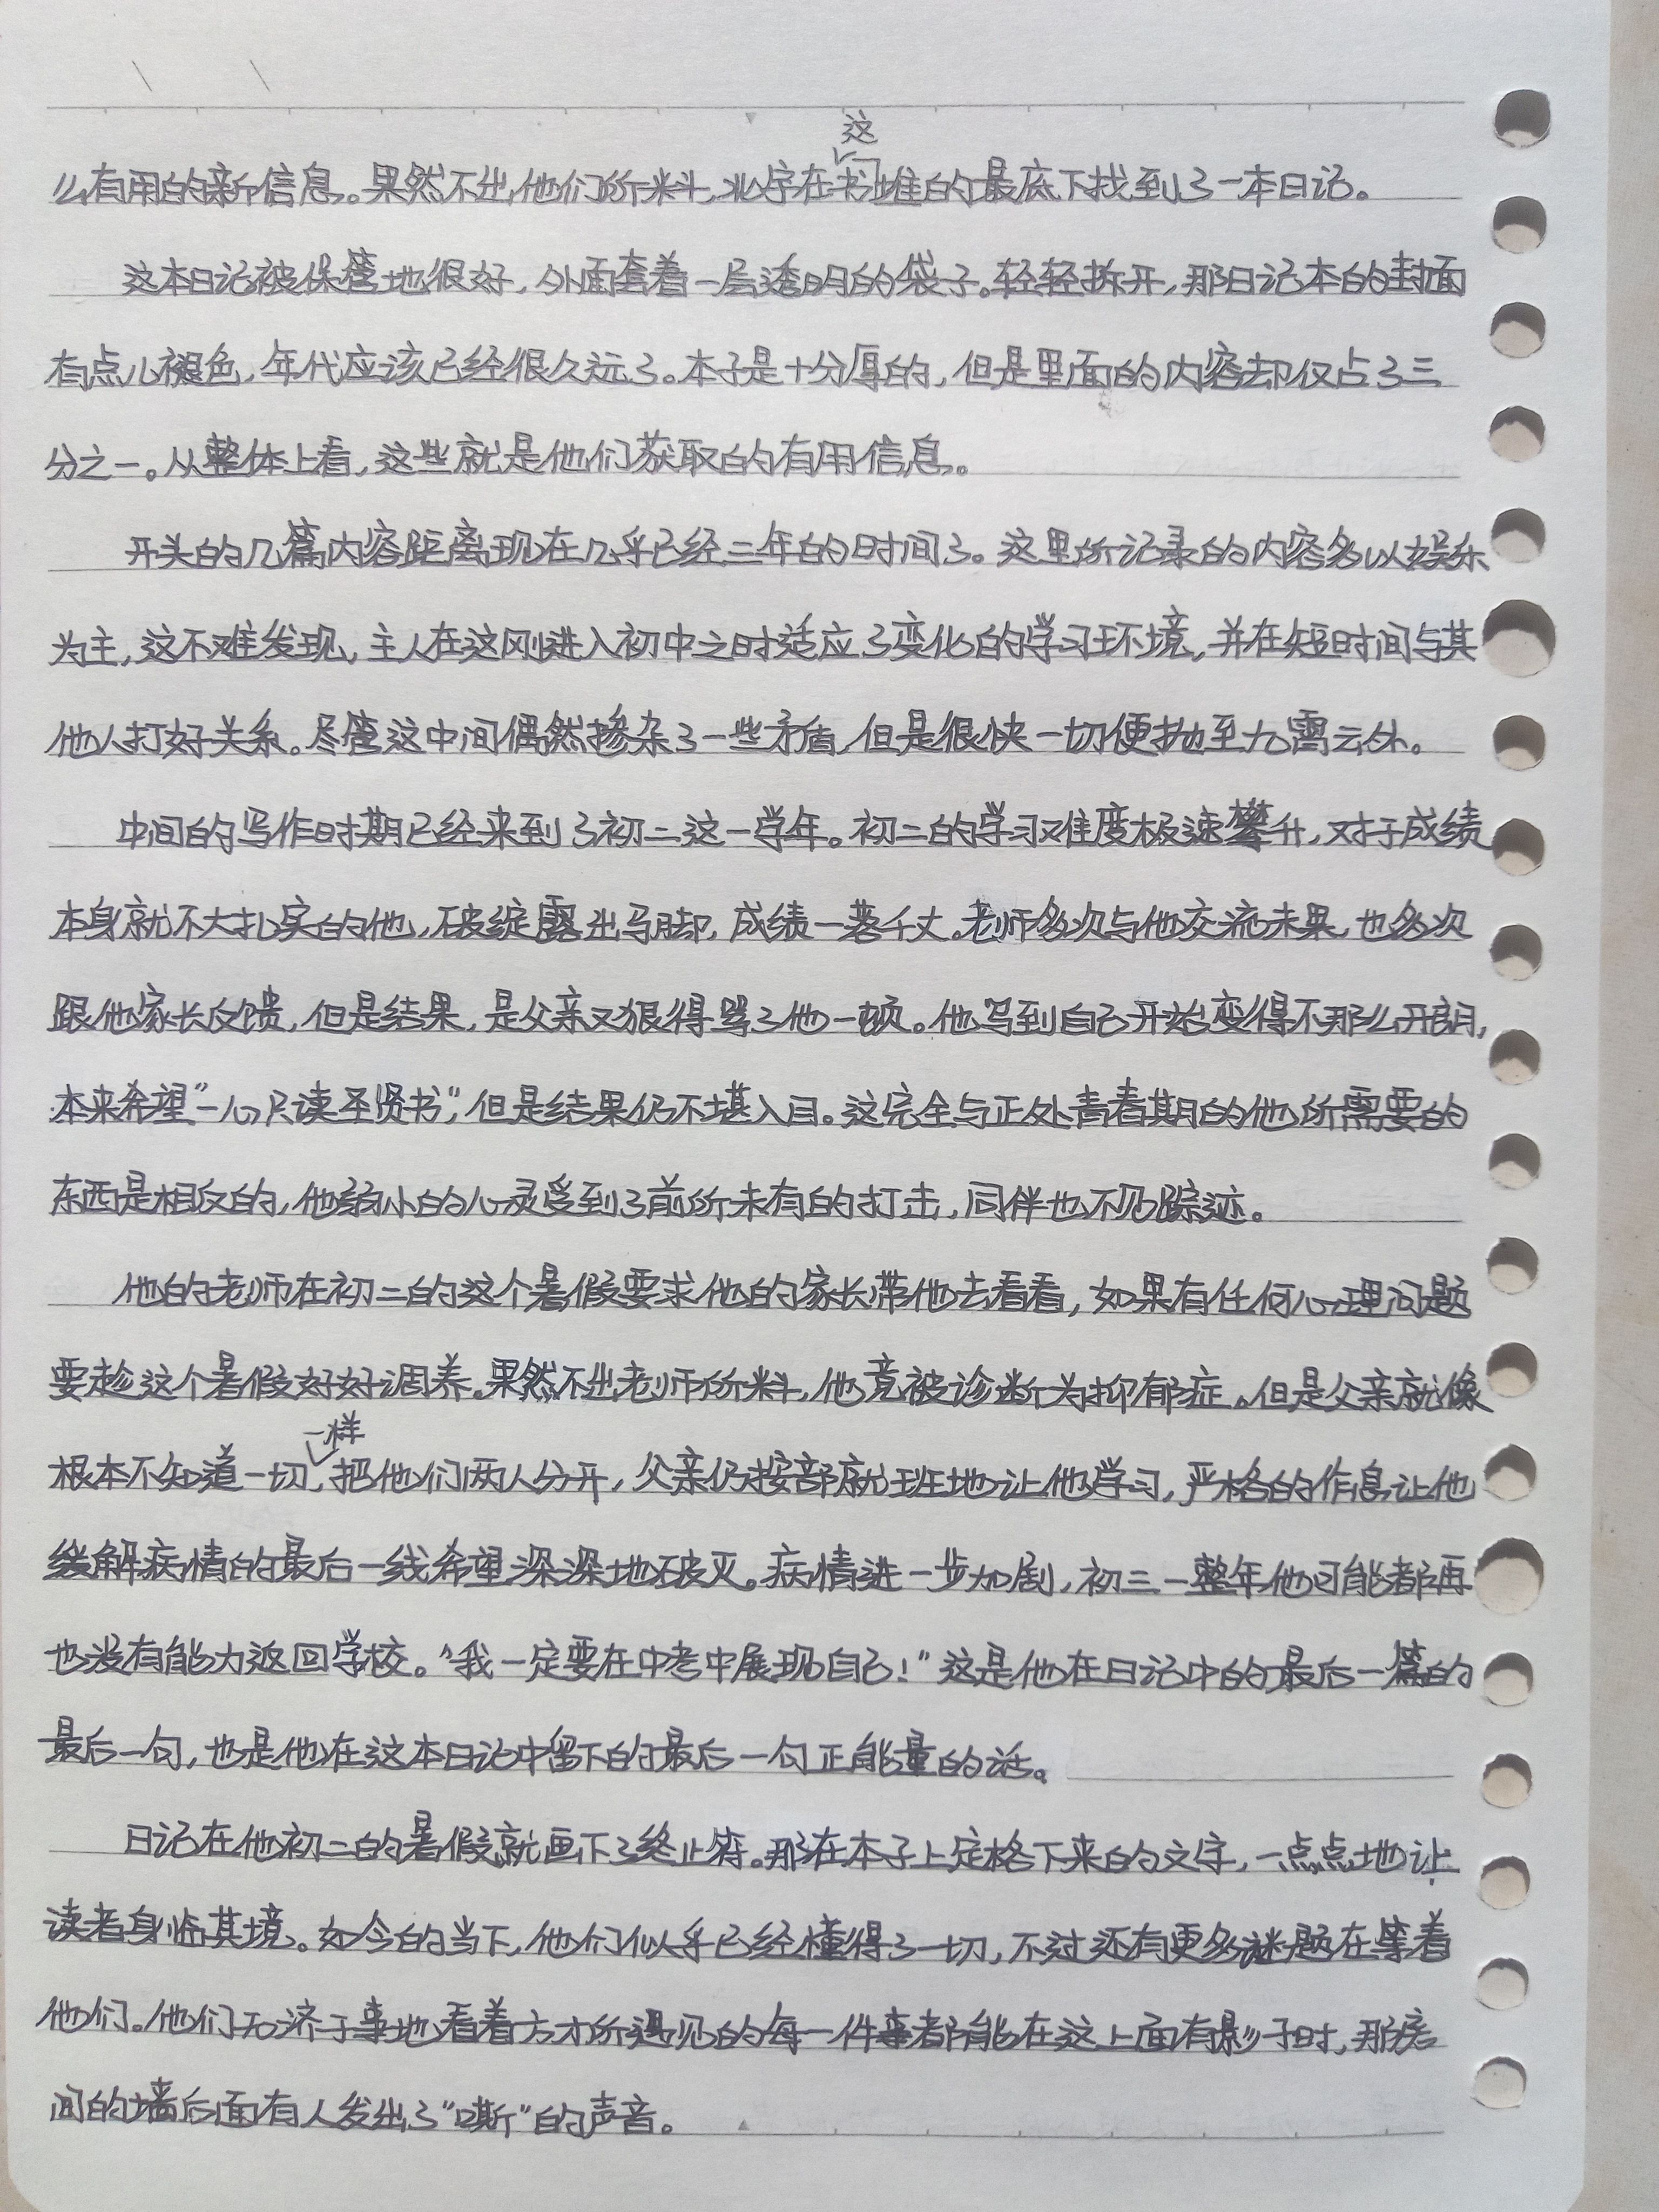 么有用的新信息。果然不出他们所料,北宇在这书堆的最底下找到了一本日记。
这本日记被保管地很好,外面套着一层透明的袋子。轻轻拆开,那日记本的封面
有点儿褪色,年代应该已经很久远了。本子是十分厚的,但是里面的内容却仅占了三
分之一。从整体上看,这些就是他们获取的有用信息。
开头的几篇内容距离现在几乎已经三年的时间了。这里所记录的内容多以娱乐
为主,这不难发现,主人在这刚进入初中之时适应了变化的学习环境,并在短时间与其
他人打好关系。尽管这中间偶然掺杂了一些矛盾,但是很快一切便抛至九霄云外。
中间的写作时期已经来到了初二这一学年。初二的学习难度极速攀升,对于成绩
本身就不大扎实的他,破绽露出马脚,成绩一落千丈。老师多次与他交流未果,也多次
跟他家长反馈,但是结果,是父亲又狠得骂了他一顿。他写到自己开始变得不那么开朗,
本来希望"一心只读圣贤书",但是结果仍不堪入目。这完全与正处青春期的他所需要的
东西是相反的,他幼小的心灵受到了前所未有的打击,同伴也不见踪迹。
他的老师在初二的这个暑假要求他的家长带他去看看,如果有任何心理问题
要趁这个暑假好好调养。果然不出老师所料,他竟被诊断为抑郁症。但是父亲就像
根本不知道一切一样,把他们两人分开,父亲仍按部就班地让他学习,严格的作息让他
缓解病情的最后一线希望深深地破灭。病情进一步加剧,初三一整年他可能都再
也没有能力返回学校。"我一定要在中考中展现自己!"这是他在日记中的最后一篇的
最后一句,也是他在这本日记中留下的最后一句正能量的话。
日记在他初二的暑假就画下了终止符。那在本子上定格下来的文字,一点点地让
读者身临其境。如今的当下,他们似乎已经懂得了一切,不过还有更多谜题在等着
他们。他们无济于事地看着方才所遇见的每一件事都能在这上面有影子时,那房
间的墙后面有人发出了"嘶"的声音。